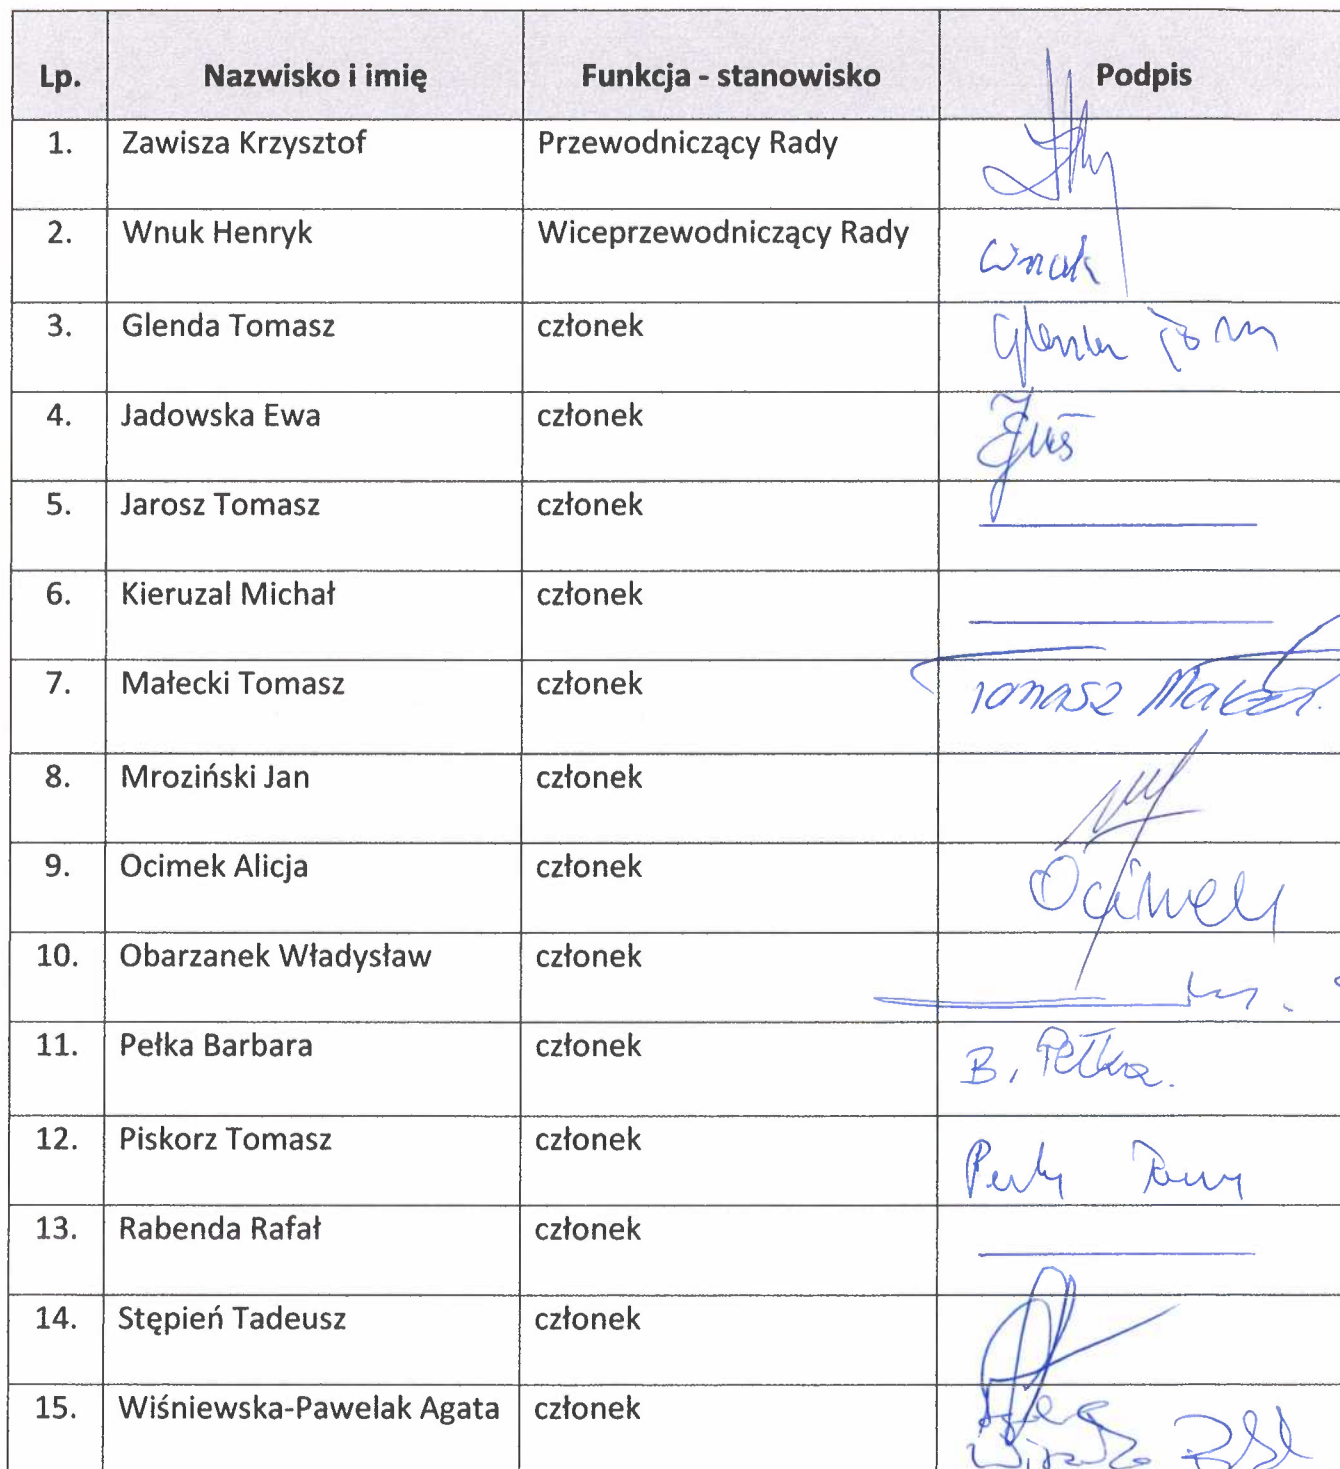 Lp. Nazwisko i imię Funkcja - stanowisko Podpis
1. Zawisza Krzysztof Przewodniczący Rady
2. Wnuk Henryk Wiceprzewodniczący Rady Wnuk
3. Glenda Tomasz członek Glenda Tom
4. Jadowska Ewa członek
5. Jarosz Tomasz członek
6. Kieruzal Michał członek
7. Małecki Tomasz członek Tomasz Małecki
8. Mroziński Jan członek
9. Ocimek Alicja członek Ocimek
10. Obarzanek Władysław członek
11. Pełka Barbara członek B. Pełka.
12. Piskorz Tomasz członek
13. Rabenda Rafał członek
14. Stępień Tadeusz członek
15. Wiśniewska-Pawelak Agata członek